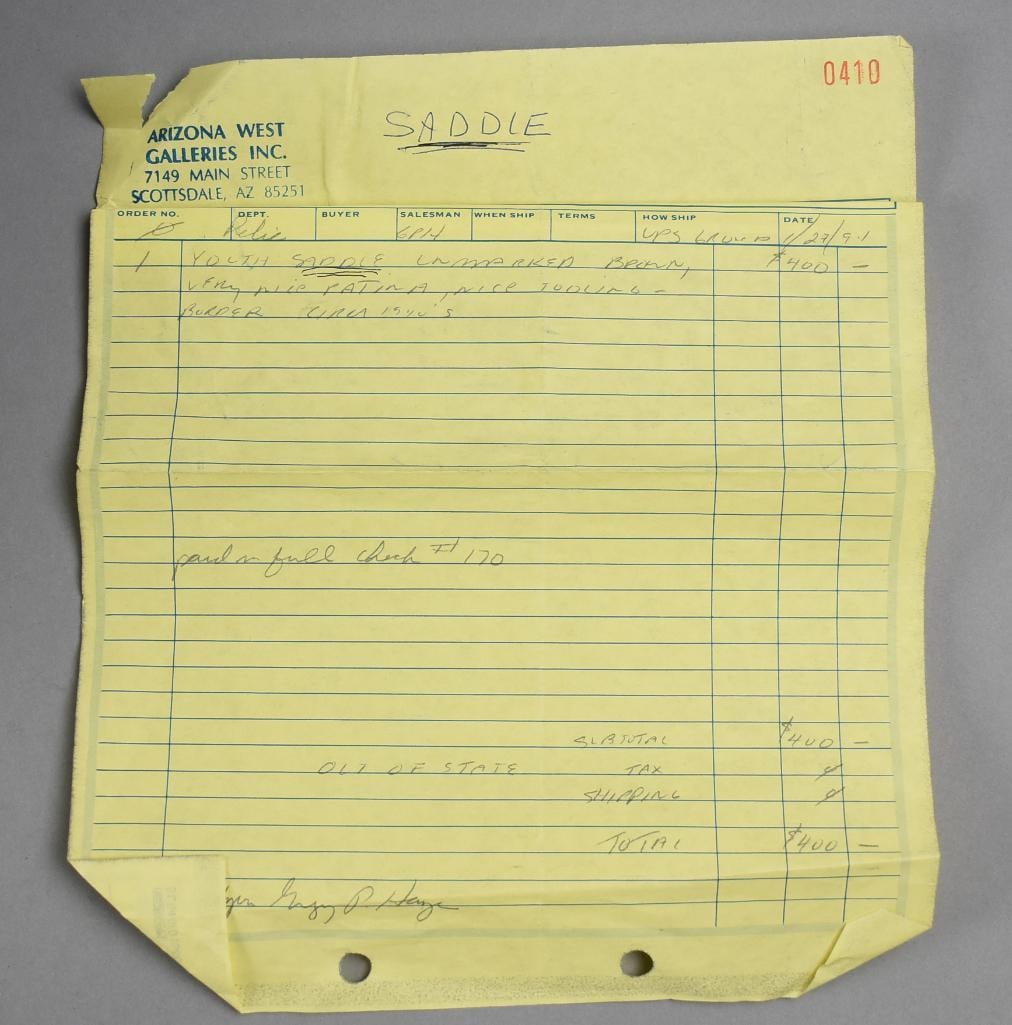 0410
SADDLE
ARIZONA WEST
GALLERIES INC.
7149 MAIN STREET
SCOTTSDALE, AZ 85251
ORDER NO. DEPT. BUYER SALESMAN WHEN SHIP TERMS HOW SHIP DATE
Ø Relic GPH UPS GROUND 1/27/91
1 YOUTH SADDLE UNMARKED BROWN, $400 —
VERY NICE PATINA, NICE TOOLING —
BORDER CIRCA 1940'S
paid in full check # 170
SUBTOTAL $400 —
OUT OF STATE TAX Ø
SHIPPING Ø
TOTAL $400 —
P.